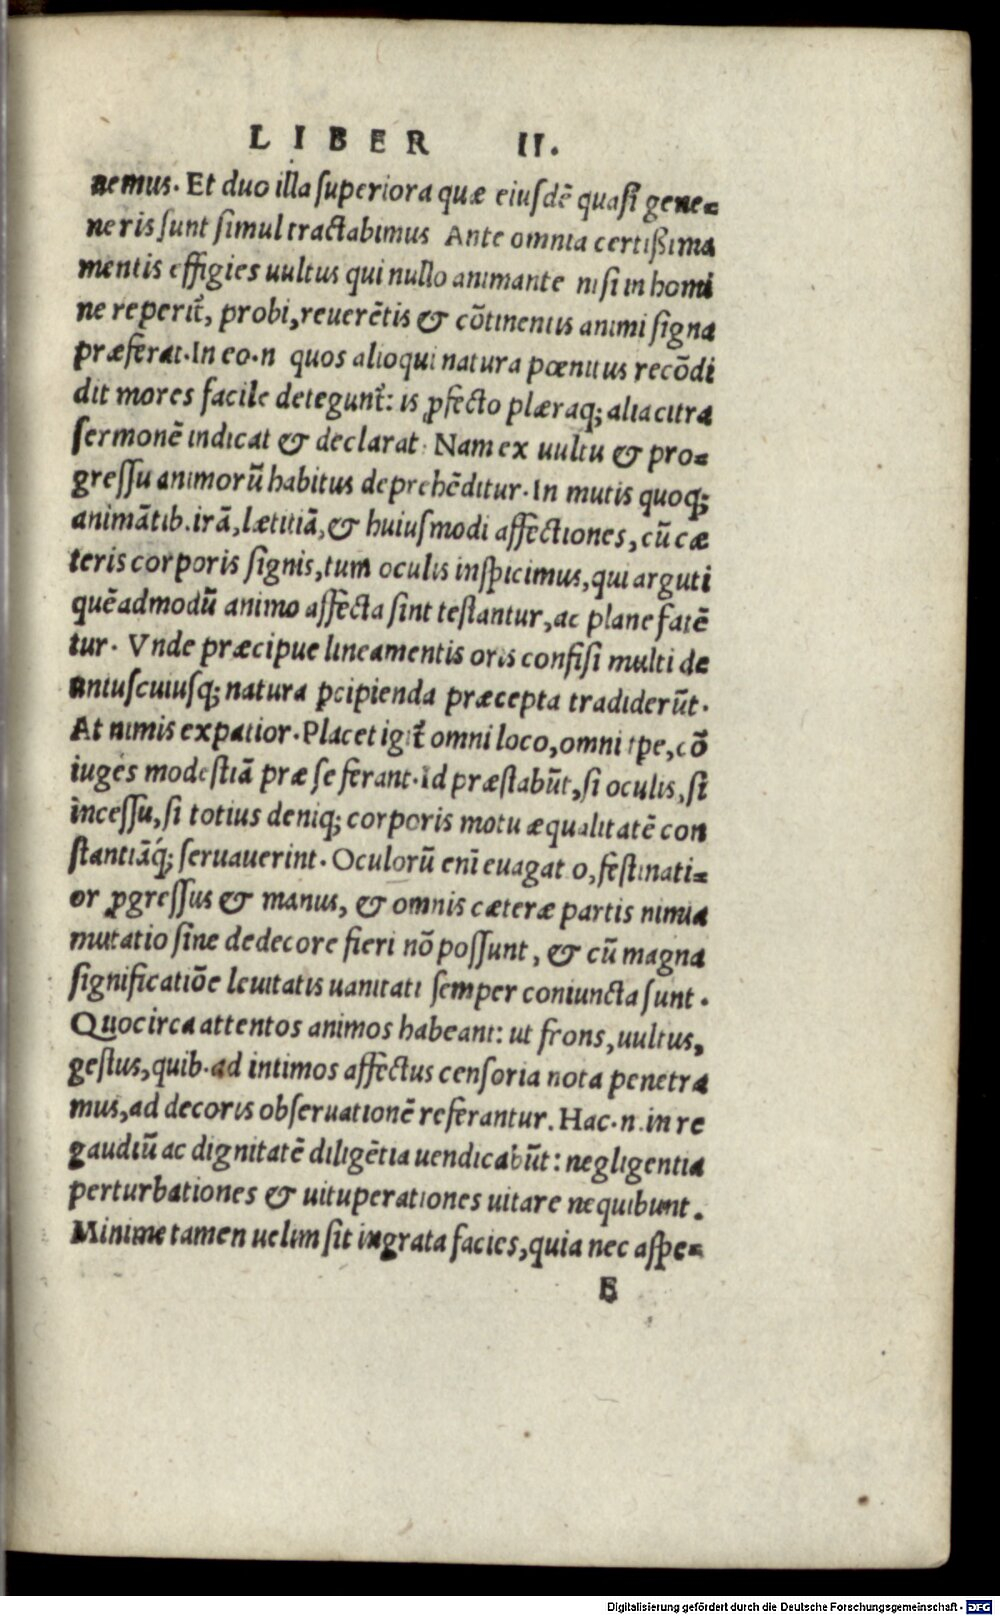 LIBER II.
nemus. Et duo illa superiora quæ eiusdē quasi gene=
neris sunt simul tractabimus Ante omnia certißima
mentis effigies uultus qui nullo animante nisi in homi
ne reperit̃, probi, reuerētis & cōtinentis animi signa
præferat. In eo.n quos alioqui natura pœnitus recōdi
dit mores facile detegunt̃: is ꝓfecto plæraq; alia citra
sermonē indicat & declarat. Nam ex uultu & pro=
gressu animorū habitus deprehēditur. In mutis quoq;
animātib. irā, lætitiā, & huiusmodi affectiones, cū cæ
teris corporis signis, tum oculis inspicimus, qui arguti
quēadmodū animo affecta sint testantur, ac plane fatē
tur. Vnde præcipue lineamentis oris confisi multi de
uniuscuiusq; natura ꝑcipienda præcepta tradiderūt.
At nimis expatior. Placet igit̃ omni loco, omni tpe, cō
iuges modestiā præ se ferant. Id præstabūt, si oculis, si
incessu, si totius deniq; corporis motu æqualitatē con
stantiāq́; seruauerint. Oculorū enī euagat o, festinati=
or ꝓgressus & manus, & omnis cæteræ partis nimia
mutatio sine dedecore fieri nō possunt, & cū magna
significatiōe leuitatis uanitati semper coniuncta sunt.
Quocirca attentos animos habeant: ut frons, uultus,
gestus, quib. ad intimos affectus censoria nota penetra
mus, ad decoris obseruationē referantur. Hac.n.in re
gaudiū ac dignitatē diligētia uendicabūt: negligentia
perturbationes & uituperationes uitare nequibunt.
Minime tamen uelim sit ingrata facies, quia nec aspe=
E
Digitalisierung gefördert durch die Deutsche Forschungsgemeinschaft - DFG